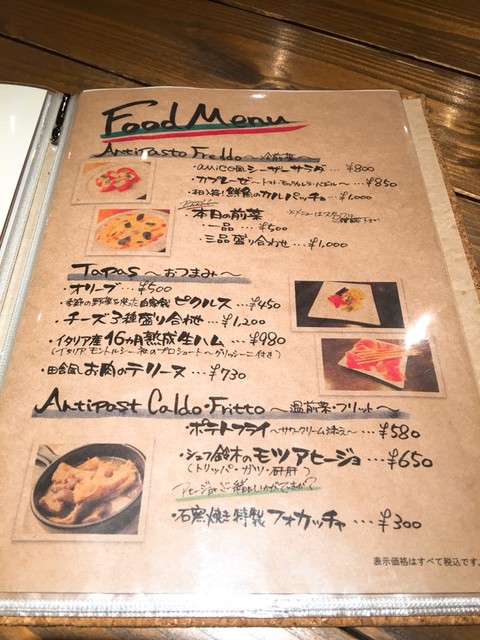 Food Menu
Antipasto Freddo ～冷前菜～
・amico風シーザーサラダ … ¥800
・カプレーゼ ～トマト・モッツァレラ・バジル～ … ¥850
鮮魚のカルパッチョ … ¥1,000
本日の前菜
・一品 … ¥500
・三品盛り合わせ … ¥1,000
Tapas ～おつまみ～
・オリーブ … ¥500
・季節の野菜を使った自家製ピクルス … ¥450
・チーズ3種盛り合わせ … ¥1,200
・イタリア産16ヵ月熟成生ハム … ¥980
(イタリア モントルシー社のプロシュート ～グリッシーニ付き)
・田舎風お肉のテリーヌ … ¥730
Antipast Caldo・Fritto ～温前菜・フリット～
ポテトフライ ～サワークリーム添え～ … ¥580
・シェフ鈴木のモツアヒージョ … ¥650
(トリッパ・ガツ・砂肝)
アヒージョとご一緒にいかがですか?
・石窯焼き特製フォカッチャ … ¥300
表示価格はすべて税込です。